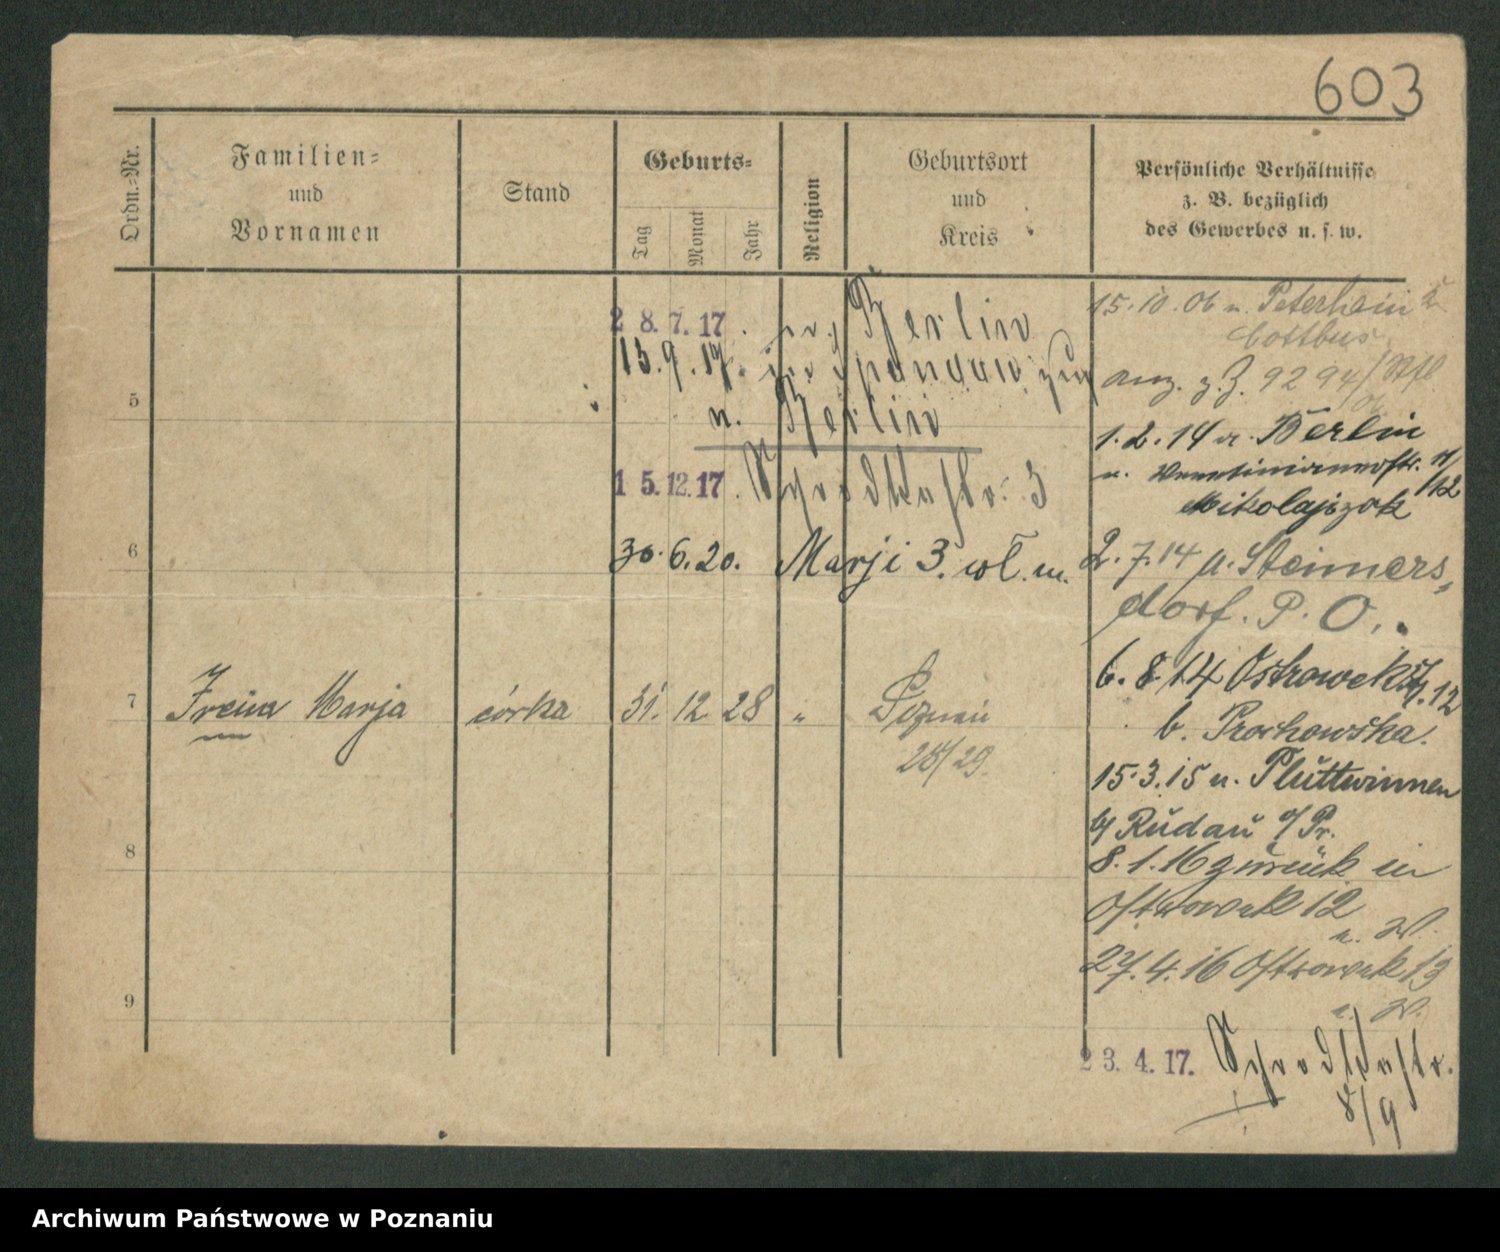 603
Ordn.-Nr.
Familien-
und
Vornamen
Stand
Geburts-
Tag
Monat
Jahr
Religion
Geburtsort
und
Kreis
Persönliche Verhältnisse
z. B. bezüglich
des Gewerbes u. s. w.
28.7.17. Berlin
13.9.17. in Spandau
n. Berlin
15.12.17. Schrodkastr. 3
30.6.20. Marji 3. wł. m.
5
6
7
Irena Marja córka 31. 12 28 "
Poznań
28/29.
8
9
15.10.06 n. Peterhain
Cottbus
anz. z. Z. 9294/
1.2.14 n. Berlin
n.
Mikolajczak
2.7.14 a. Steiners-
dorf. P. O.
6.8.14 Ostrowek 12
b. Prochowska.
15.3.15 n. Pluttwinnen
b/ Rudau O/Pr.
8.1.16 zurück in
Ostrowek 12
n. W.
27.4.16 Ostrowek 13
W.
23.4.17. Schrodkastr.
8/9
Archiwum Państwowe w Poznaniu